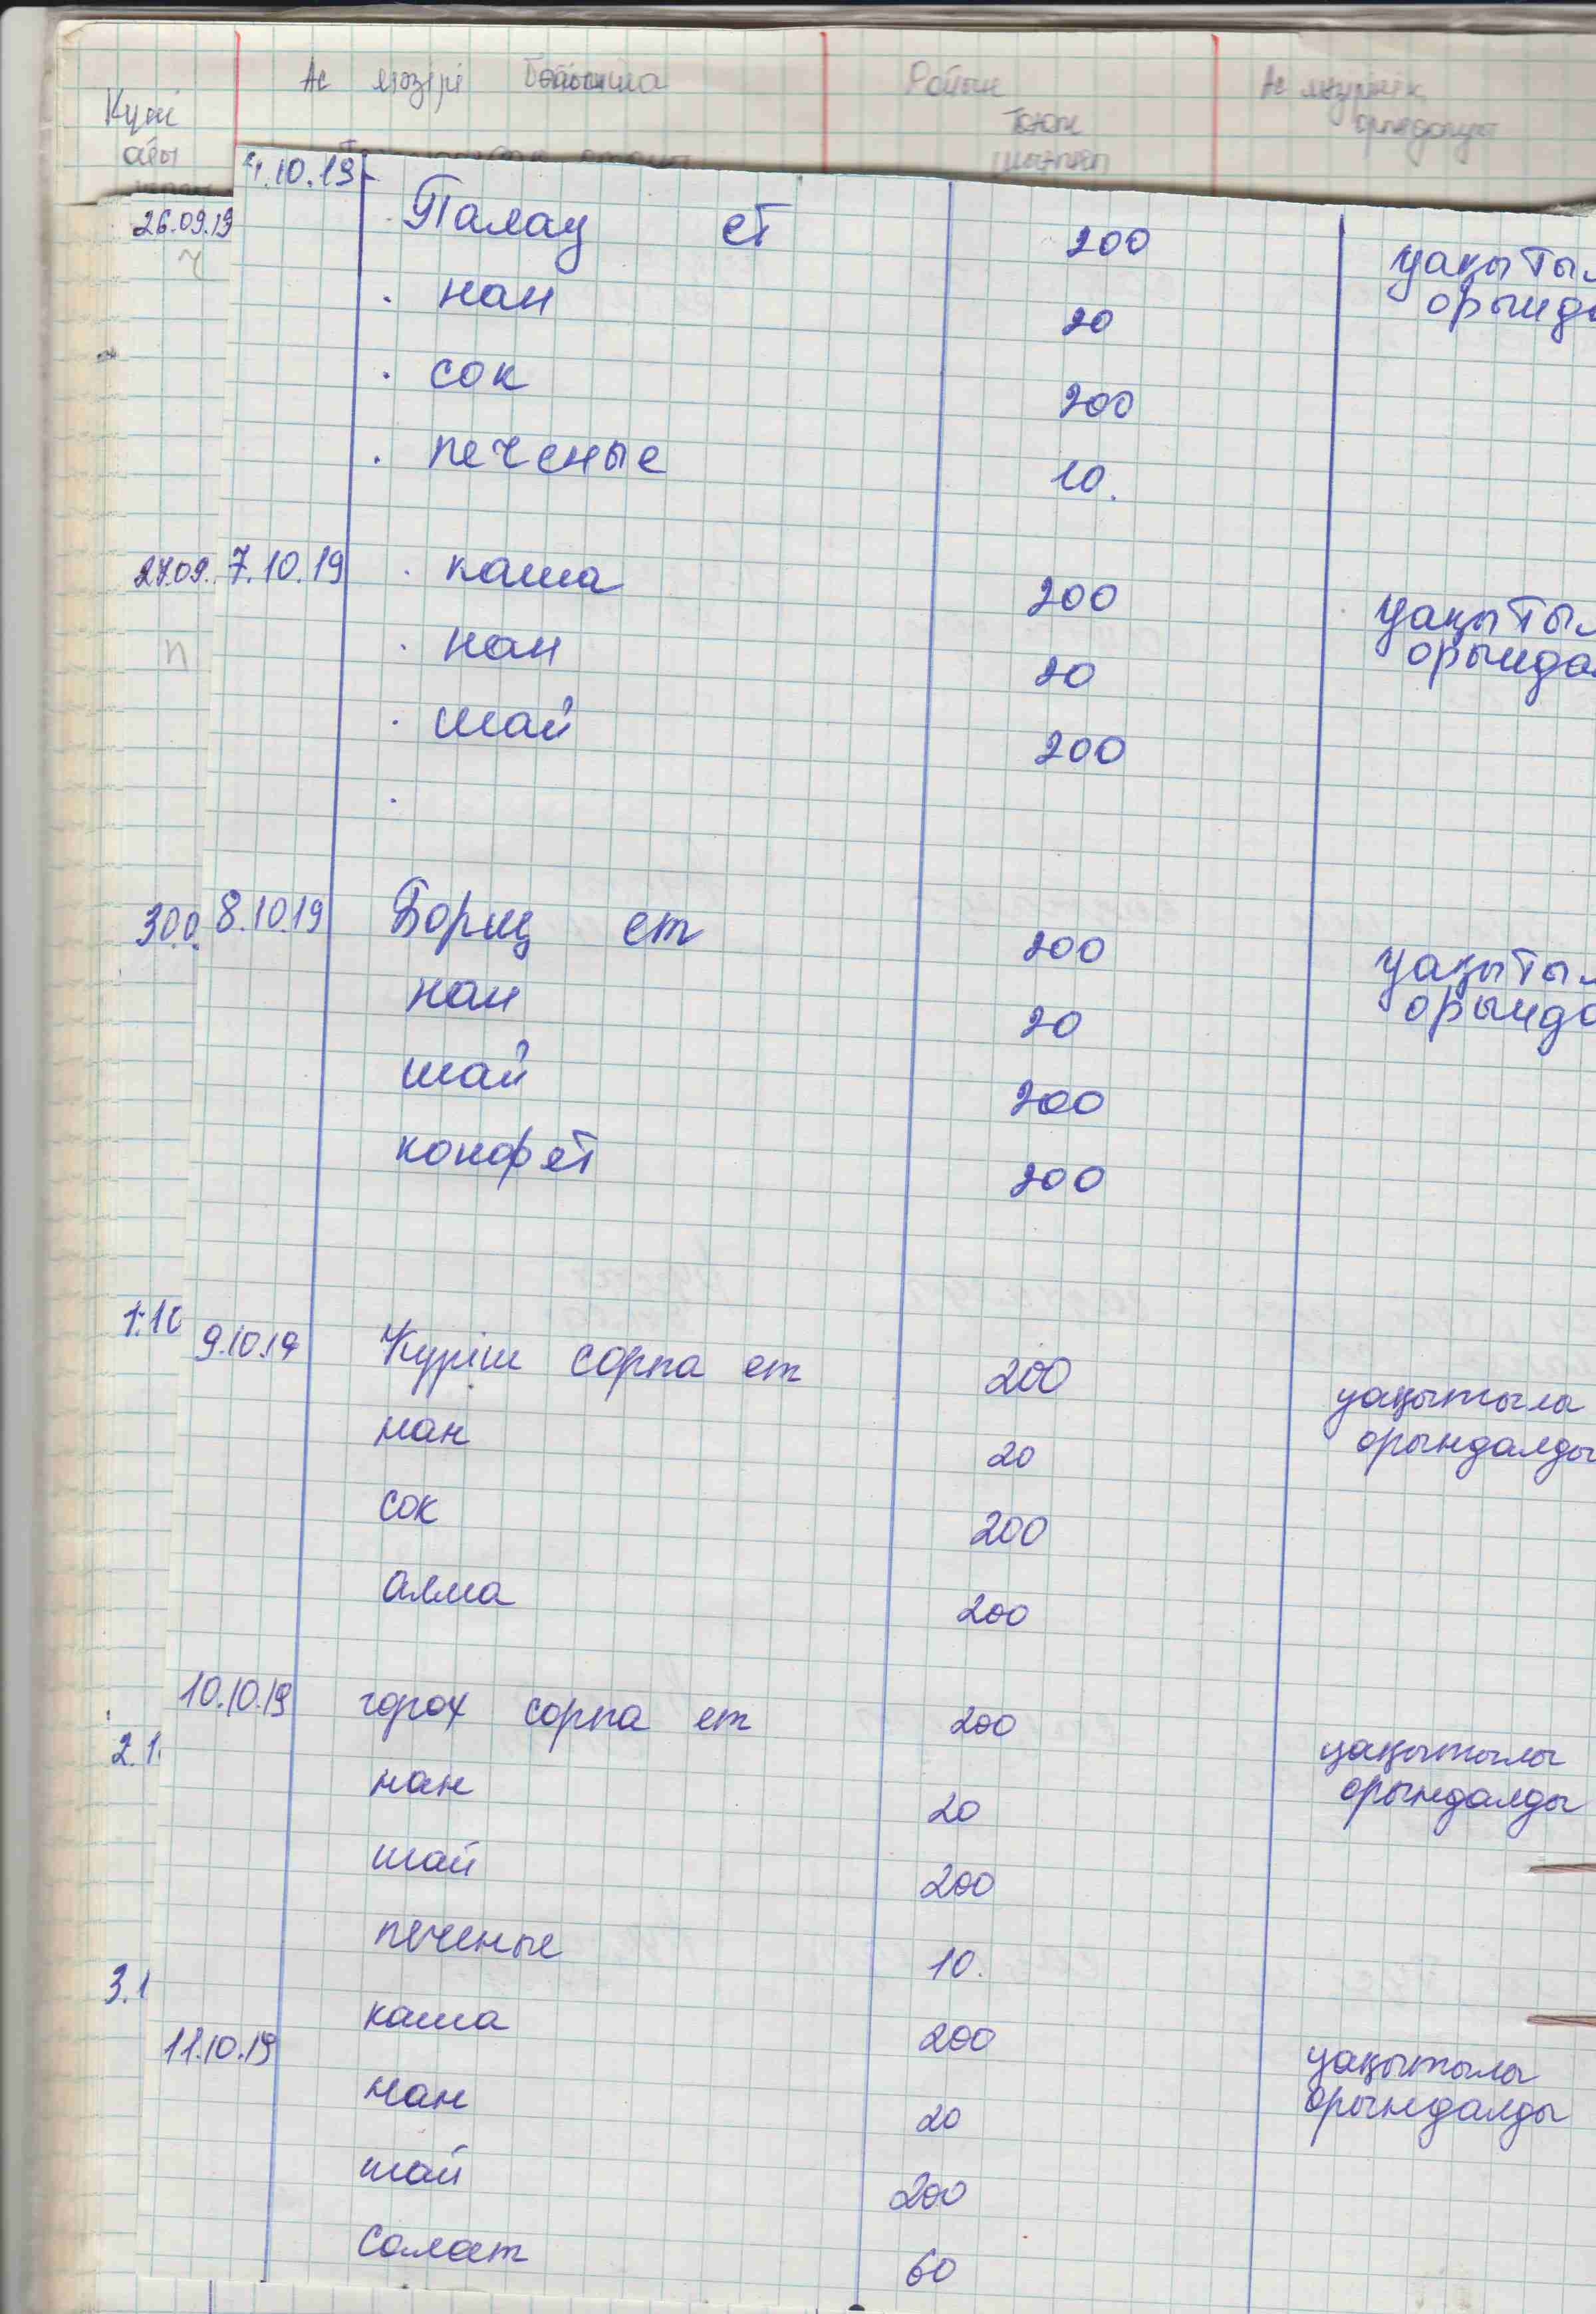 Ас мәзірі бойынша
Күні
айы
Ас мәзірінің
26.09.19
4.10.19
Палау ет 200 уақыты
орында
нан 20
сок 200
печенье 10.
27.09. 7.10.19 каша 200 уақытыл
орындал
нан 20
шай 200
30.0 8.10.19 Борщ ет 200 уақытыл
орында
нан 20
шай 200
конфет 200
1.10
9.10.19 Күріш сорпа ет 200 уақытыла
орындалды
нан 20
сок 200
алма 200
10.10.19 горох сорпа ет 200 уақытылы
орындалды
2.1
нан 20
шай 200
печенье 10.
3.1
каша 200
11.10.19 уақытылы
орындалды
нан 20
шай 200
Салат 60